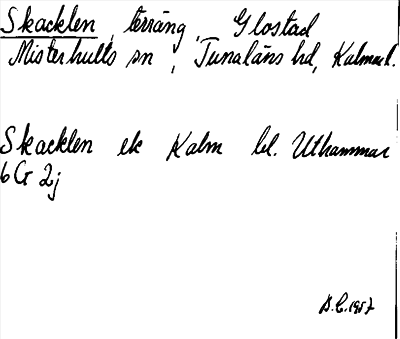 Skacklen, terräng, Glostad
Misterhults sn, Tunaläns hd, Kalmar l.
Skacklen ek Kalm bl. Uthammar
6 G 2j
B.C. 1957